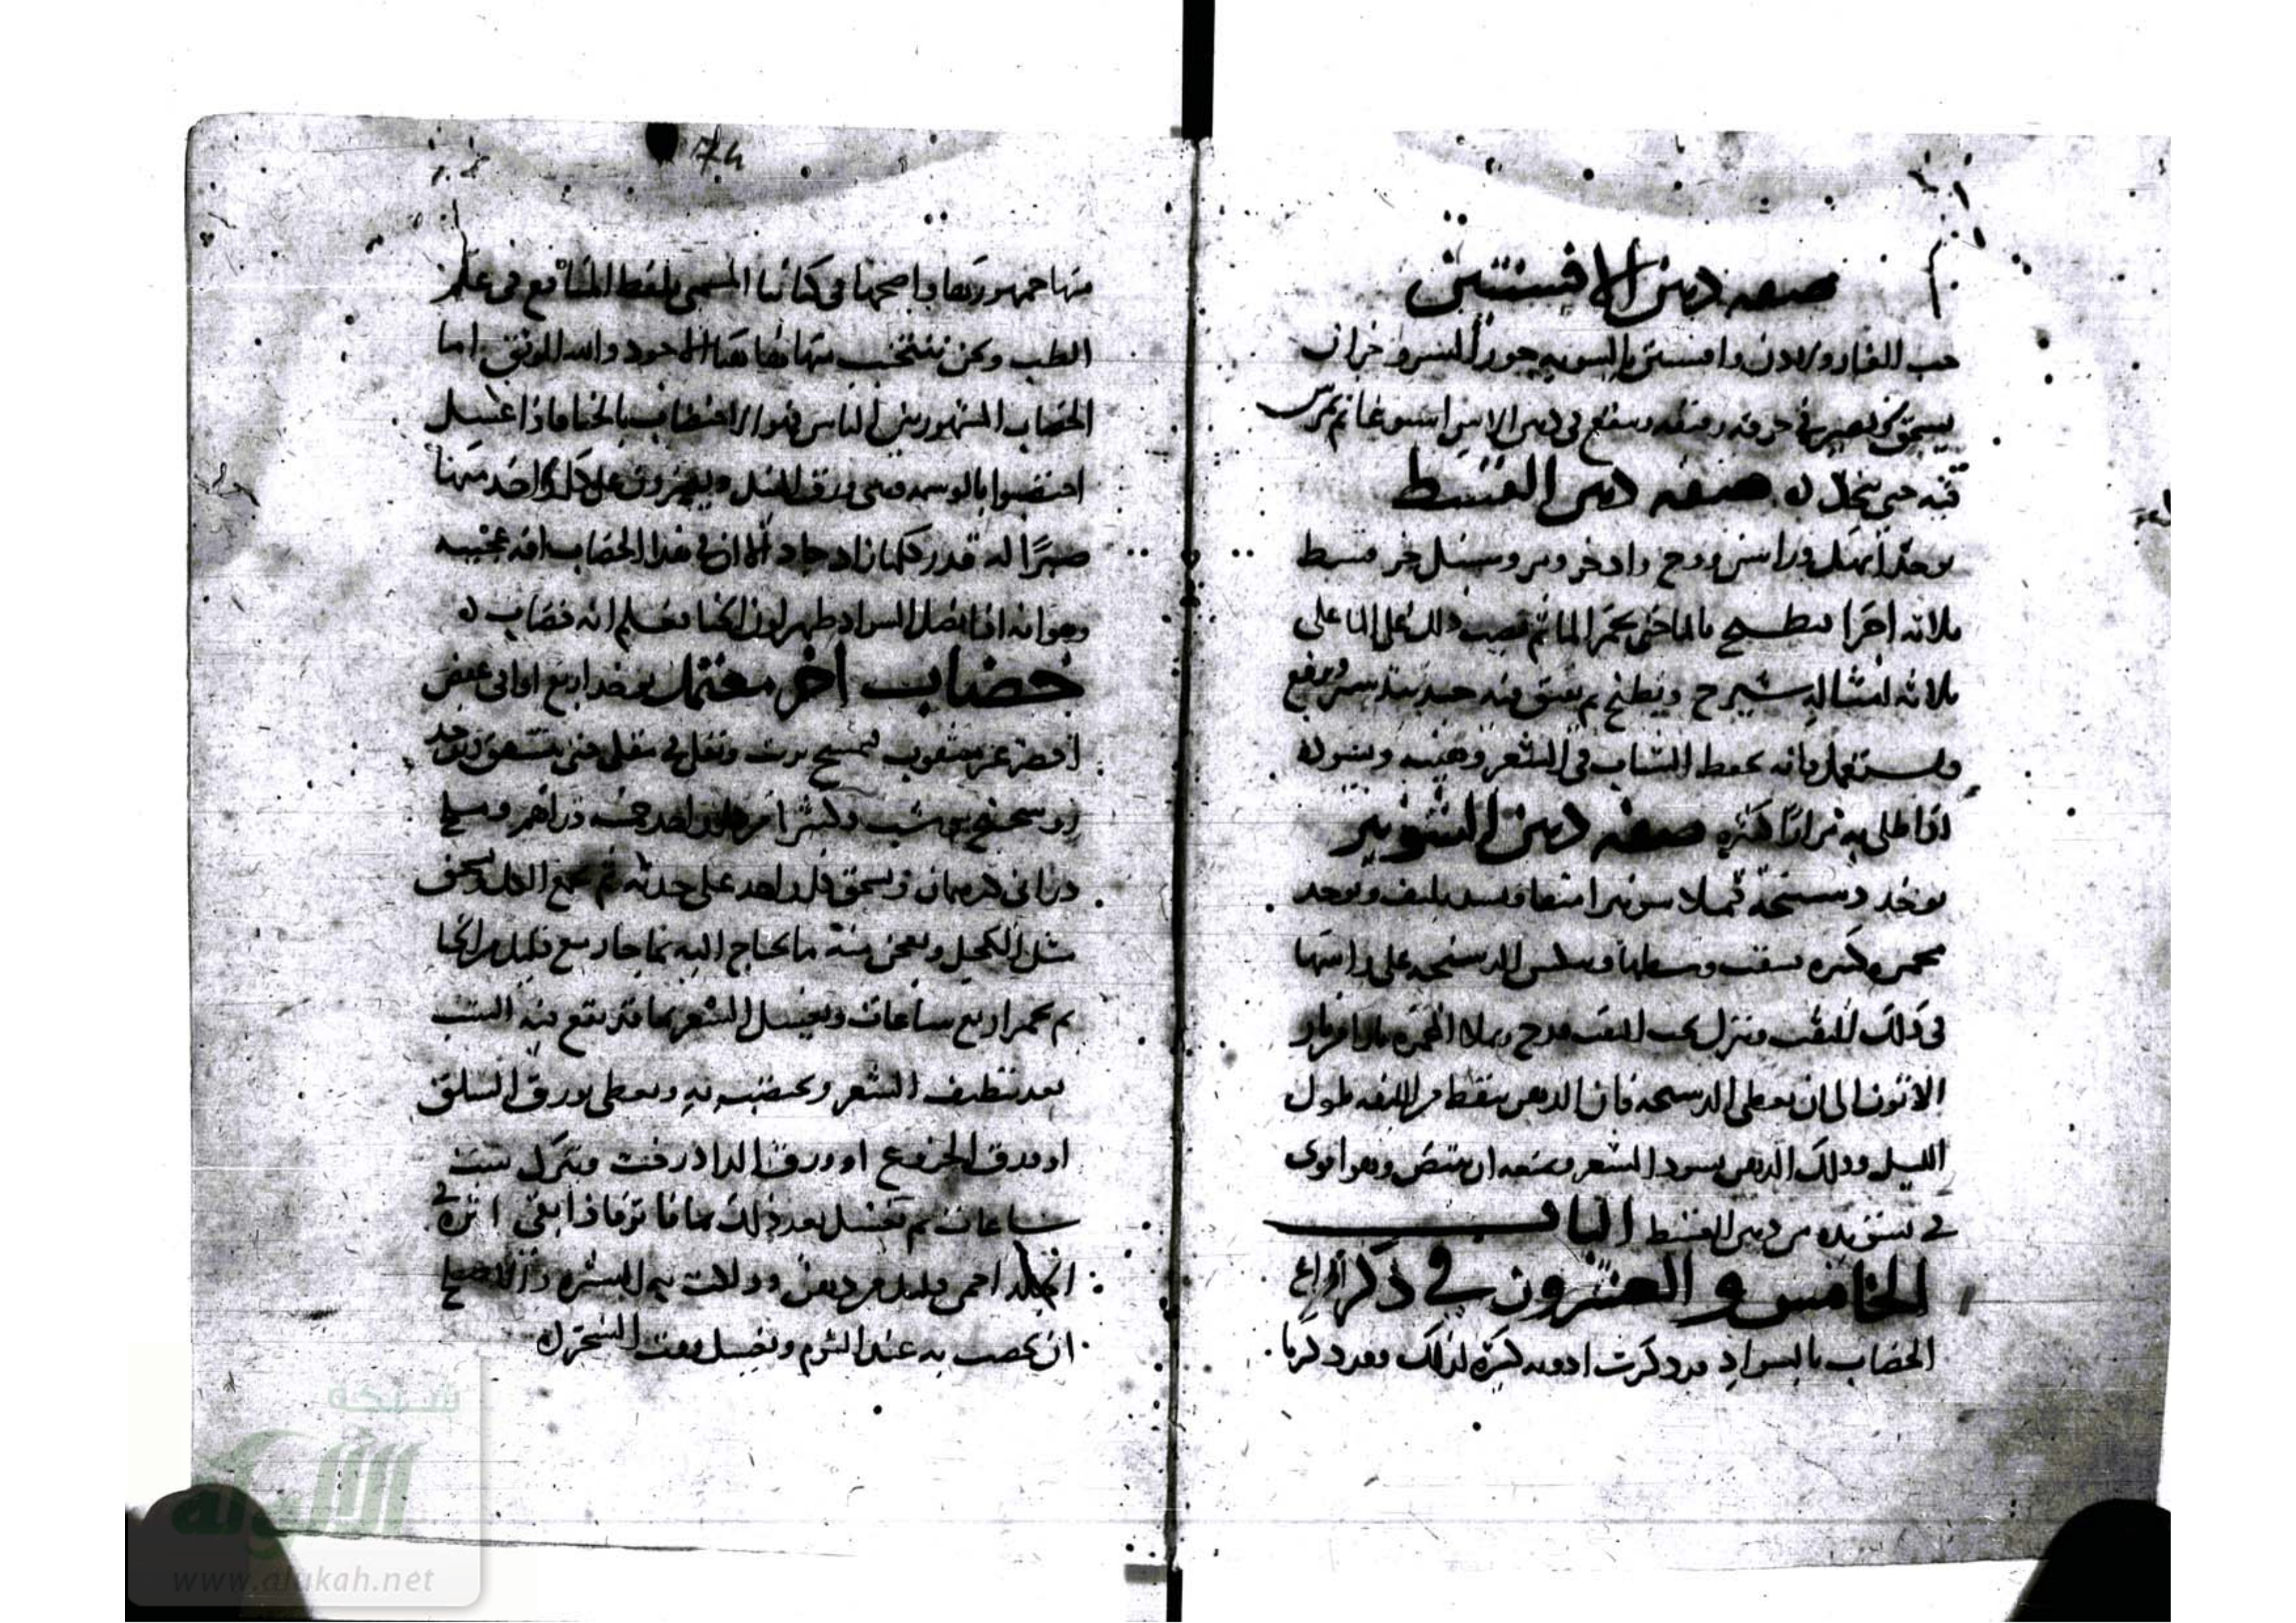 صفه دهن الافسنتين
حب الغار ولادن وافسنتين بالسويه جوز السرو جزان
يسحق ويصير في خرقه ويقع في دهن الاس اسبوعا ثم يمرس
فيه حتى ينحل ه صفه دهن القسط
يوخذ ابهل وراسن ووج واذخر ومر وسنبل جز قسط
ثلاثه اجزا يطبخ بالما حتى يحمر الما ثم يصب ذلك الما على
ثلاثه امثاله شيرج ويطبخ
ويستعمل فانه يحفظ الشباب في الشعر وهيبته ويسوده
اذا طلي به مرارا كثيره صفه دهن الشونيز
يوخذ دستجه تملا شونيزا وتسد بليف ويوخذ
مجمره كبيره يثقب وسطها وينكس الدستجه على راسها
في ذلك الثقب وينزل تحت الثقب قدح ويملا المجمره نارا
الى ان يغطي الدستجه فان الدهن ينقط من الليفه طول
الليل وذلك الدهن يسود الشعر ويمنعه ان يبيض وهو اقوى
في تسويده من دهن القسط الباب
الخامس والعشرون في ذكر انواع
الخضاب بالسواد قد ذكرت ادويه كثيره لذلك وقد ذكرنا
74
منها جمهورها واصحها في كتابنا المسمى بلقط المنافع في علم
الطب ونحن ننتخب منها هاهنا الاجود والله الموفق اما
الخضاب المشهور بين الناس فهو الاختضاب بالحنا فاذا غسل
اختضبوا بالوسمه وهي ورق النيل ويصبرون على كل واحد منهما
صبرا له قدر كلما زاد جاد الا ان في هذا الخضاب افه عجيبه
وهو انه اذا نصل السواد ظهر لون الحنا فعلم انه خضاب ه
خضاب اخر معتمل يوخذ اربع اواقي عفص
اخضر غير مثقوب يمسح بزيت ويقلى في مقلى حتى يتشقق ويوخذ
روسختج وشب وكثيرا من كل واحد خمسه دراهم وملح
دراني درهمان ويسحق كل واحد على حدته ثم يجمع الكل ويسحق
مثل الكحل ويعجن منه ما يحتاج اليه بما حار مع قليل من الحنا
ثم يخمر اربع ساعات ويغسل الشعر بما قد نقع فيه الشب
بعد تنظيف الشعر ويخضب به ويغطى بورق السلق
او ورق الخروع او ورق الدادرخت ويترك ست
ساعات ثم يغسل بعد ذلك بما فاتر فاذا بقي اثره في
الجلد احمي قليل من دهن ودلكت به البشره والاصلح
ان يخضب به عند النوم ويغسل وقت السحر ه
شبكة
الألوكة
www.alukah.net